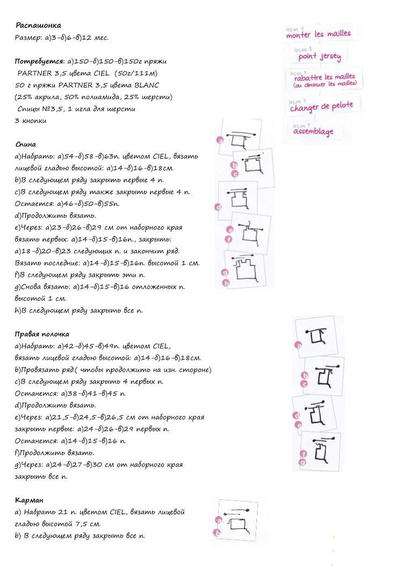 Распашонка
Размер: а)3-б)6-в)12 мес.
Потребуется: а)150-б)150-в)150г пряжи
PARTNER 3,5 цвета CIEL (50г/111м)
50 г пряжи PARTNER 3,5 цвета BLANC
(25% акрила, 50% полиамида, 25% шерсти)
Спицы №3,5, 1 игла для шерсти
3 кнопки
leçon 1
monter les mailles
leçon 2
point jersey
rabattre les mailles
(ou diminuer les mailles)
changer de pelote
assemblage
Спина
а)Набрать: а)54-б)58-в)63п. цветом CIEL, вязать
лицевой гладью высотой: а)14-б)16-в)18см.
b)В следующем ряду закрыть первые 4 п.
c)В следующем ряду также закрыть первые 4 п.
Остается: а)46-б)50-в)55п.
d)Продолжить вязать.
e)Через: а)23-б)26-в)29 см от наборного края
вязать первых: а)14-б)15-в)16п., закрыть:
а)18-б)20-в)23 следующих п. и закончит ряд.
Вязать последние: а)14-б)15-в)16п. высотой 1 см.
f)В следующем ряду закрыть эти п.
g)Снова вязать: а)14-б)15-в)16 отложенных п.
высотой 1 см.
h)В следующем ряду закрыть все п.
Правая полочка
а)Набрать: а)42-б)45-в)49п. цветом CIEL,
вязать лицевой гладью высотой: а)14-б)16-в)18см.
b)Провязать ряд.( чтобы продолжить на изн. стороне)
c)В следующем ряду закрыть 4 первых п.
Останется: а)38-б)41-в)45 п.
d)Продолжить вязать.
e)Через: а)21,5-б)24,5-в)26,5 см от наборного края
закрыть первые: а)24-б)26-в)29 первых п.
Останется: а)14-б)15-в)16 п.
f)Продолжить вязать.
g)Через: а)24-б)27-в)30 см от наборного края
закрыть все п.
Карман
а) Набрать 21 п. цветом CIEL, вязать лицевой
гладью высотой 7,5 см.
b) В следующем ряду закрыть все п.